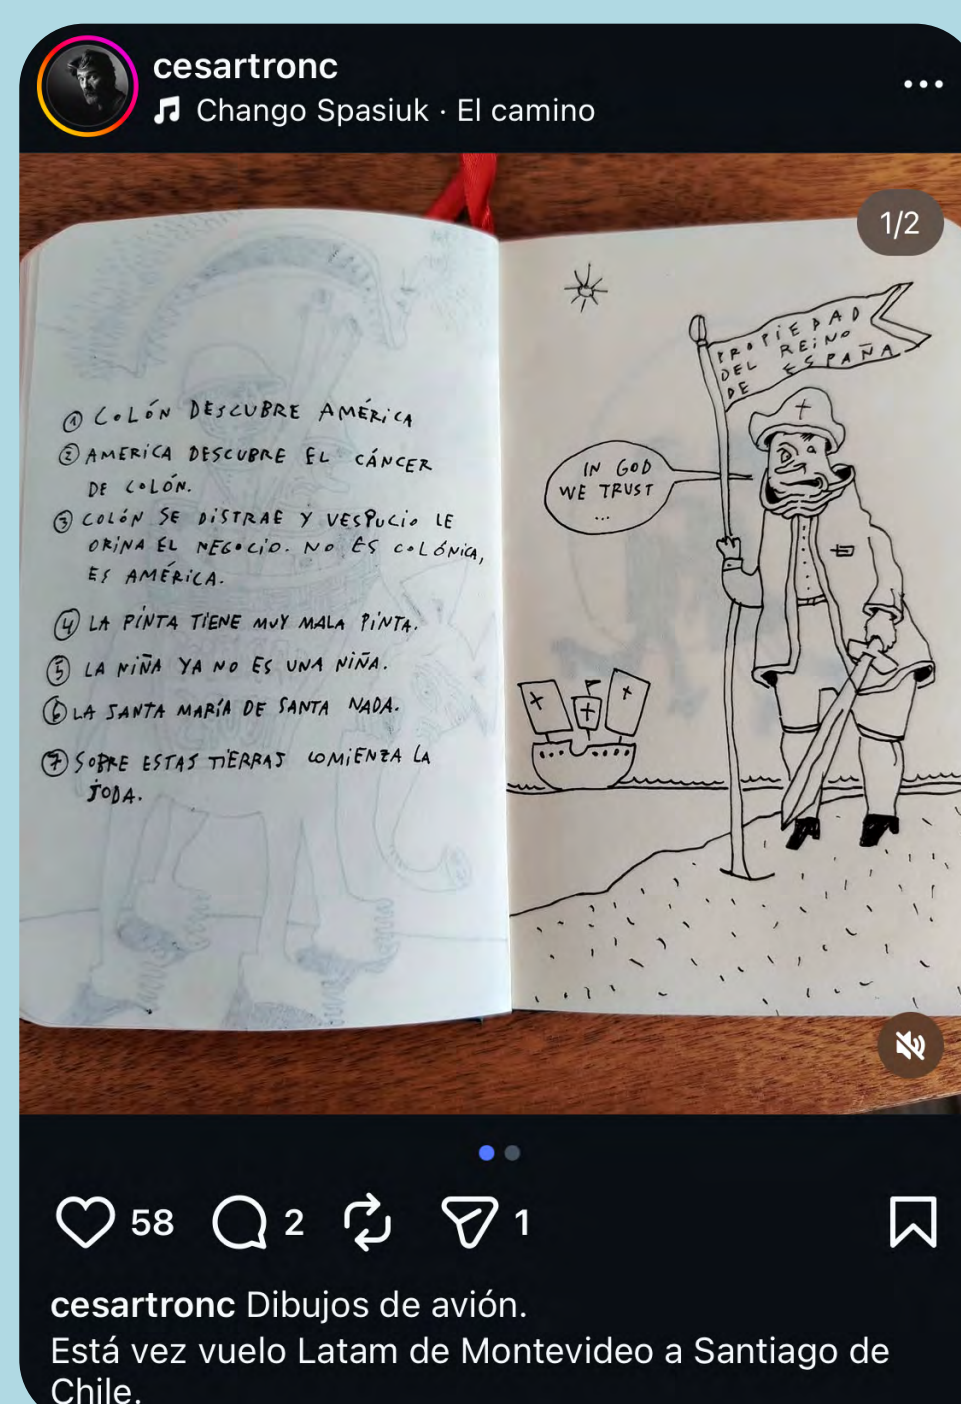 cesartronc
Chango Spasiuk · El camino
1/2
① COLÓN DESCUBRE AMÉRICA
② AMERICA DESCUBRE EL CÁNCER
DE COLÓN.
③ COLÓN SE DISTRAE Y VESPUCIO LE
ORINA EL NEGOCIO. NO ES COLÓNICA,
ES AMÉRICA.
④ LA PINTA TIENE MUY MALA PINTA.
⑤ LA NIÑA YA NO ES UNA NIÑA.
⑥ LA SANTA MARÍA DE SANTA NADA.
⑦ SOBRE ESTAS TIERRAS COMIENZA LA
JODA.
PROPIEDAD
DEL REINO
DE ESPAÑA
IN GOD
WE TRUST
...
58
2
1
cesartronc Dibujos de avión.
Está vez vuelo Latam de Montevideo a Santiago de
Chile.